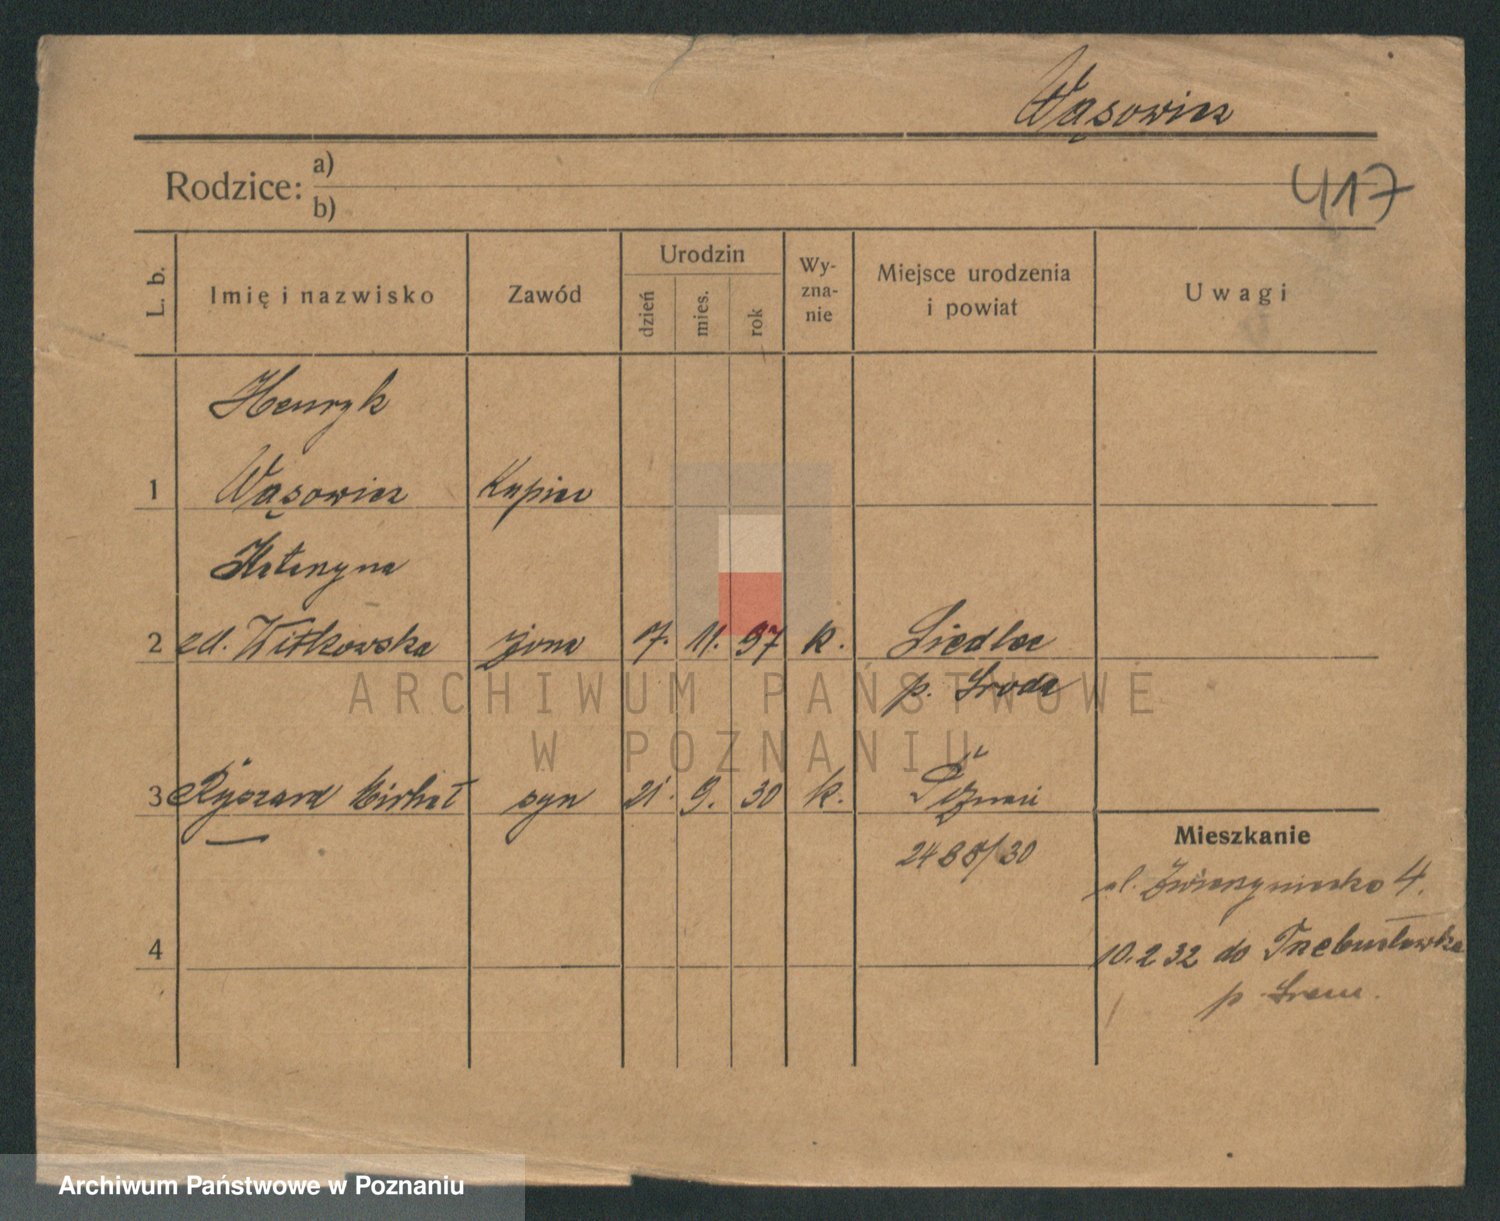 Wąsowicz
Rodzice: a)
b)
417
L. b.
Imię i nazwisko
Zawód
Urodzin
dzień
mies.
rok
Wy-
zna-
nie
Miejsce urodzenia
i powiat
Uwagi
Henryk
1 Wąsowicz Kupiec
Katarzyna
2 zd. Witkowska żona 7. 11. 97 k. Siedlec
p. Środa
3 Ryszard Michał syn 21. 9. 30 k. Poznań
2488/30
Mieszkanie
ul. Zwierzyniecka 4.
4
10.2 32 do Trzebisławka
p. Śrem.
ARCHIWUM PAŃSTWOWE
W POZNANIU
Archiwum Państwowe w Poznaniu